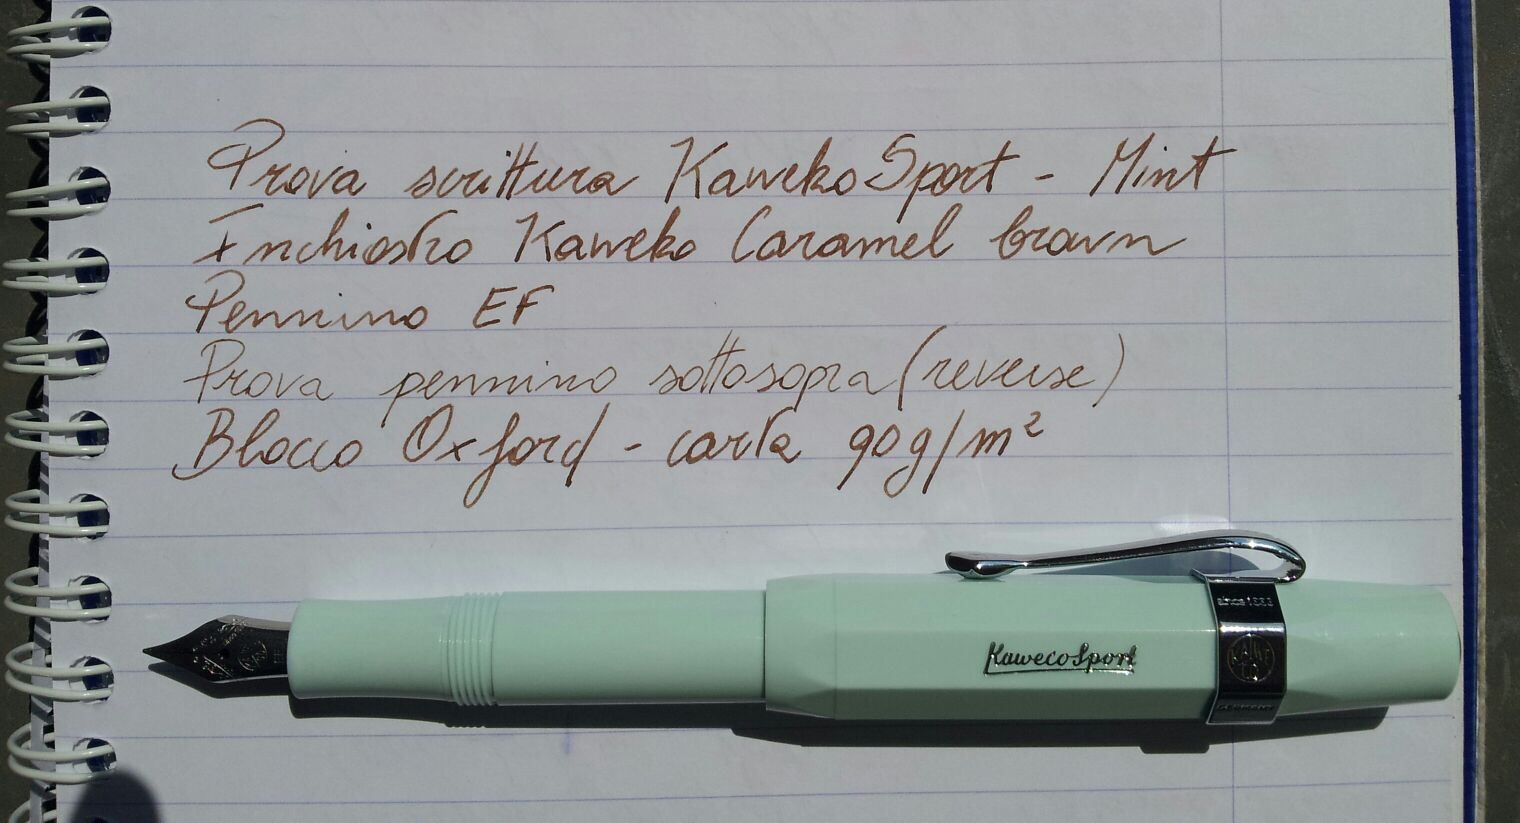 Prova scrittura Kaweko Sport - Mint
Inchiostro Kaweko Caramel brown
Pennino EF
Prova pennino sottosopra (reverse)
Blocco Oxford - carta 90g/m²
KawecoSport
since 1883
Germany